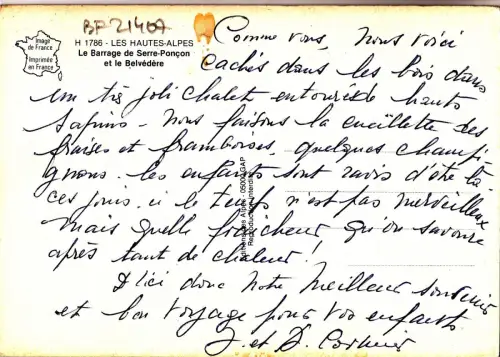 BF21407
Image
de France
Imprimée
en France
H 1786 - LES HAUTES-ALPES
Le Barrage de Serre-Ponçon
et le Belvédère
Comme vous, nous voici
cachés dans les bois dans
un très joli chalet entouré de hauts
sapins - nous faisons la cueillette des
fraises et framboises, quelques champi-
gnons. les enfants sont ravis d'être là
ces jours. ici le temps n'est pas merveilleux
mais quelle fraîcheur qu'on savoure
après tant de chaleur.
D'ici donc notre meilleur souvenir
et bon voyage pour vos enfants
J. et D.
05000 GAP
Reproduction interdite